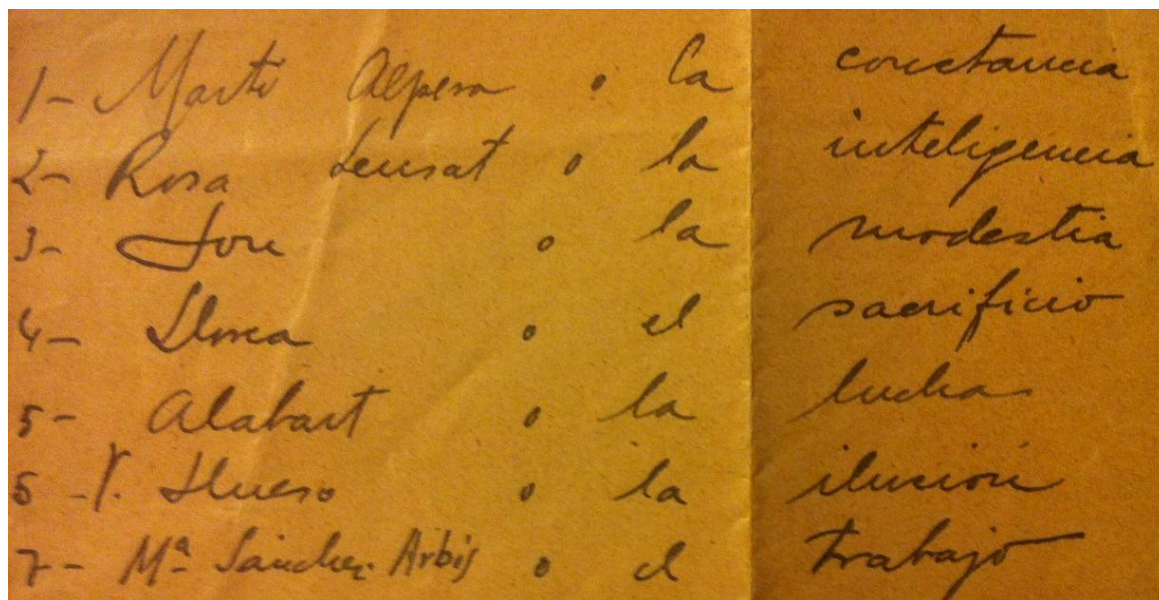 1- Martí Alpera o la constancia
2- Rosa Sensat o la inteligencia
3- Jou o la modestia
4- Llorca o el sacrificio
5- Alabart o la lucha
5 - Llueso o la ilusión
7- Mª Sánchez Arbós o el trabajo